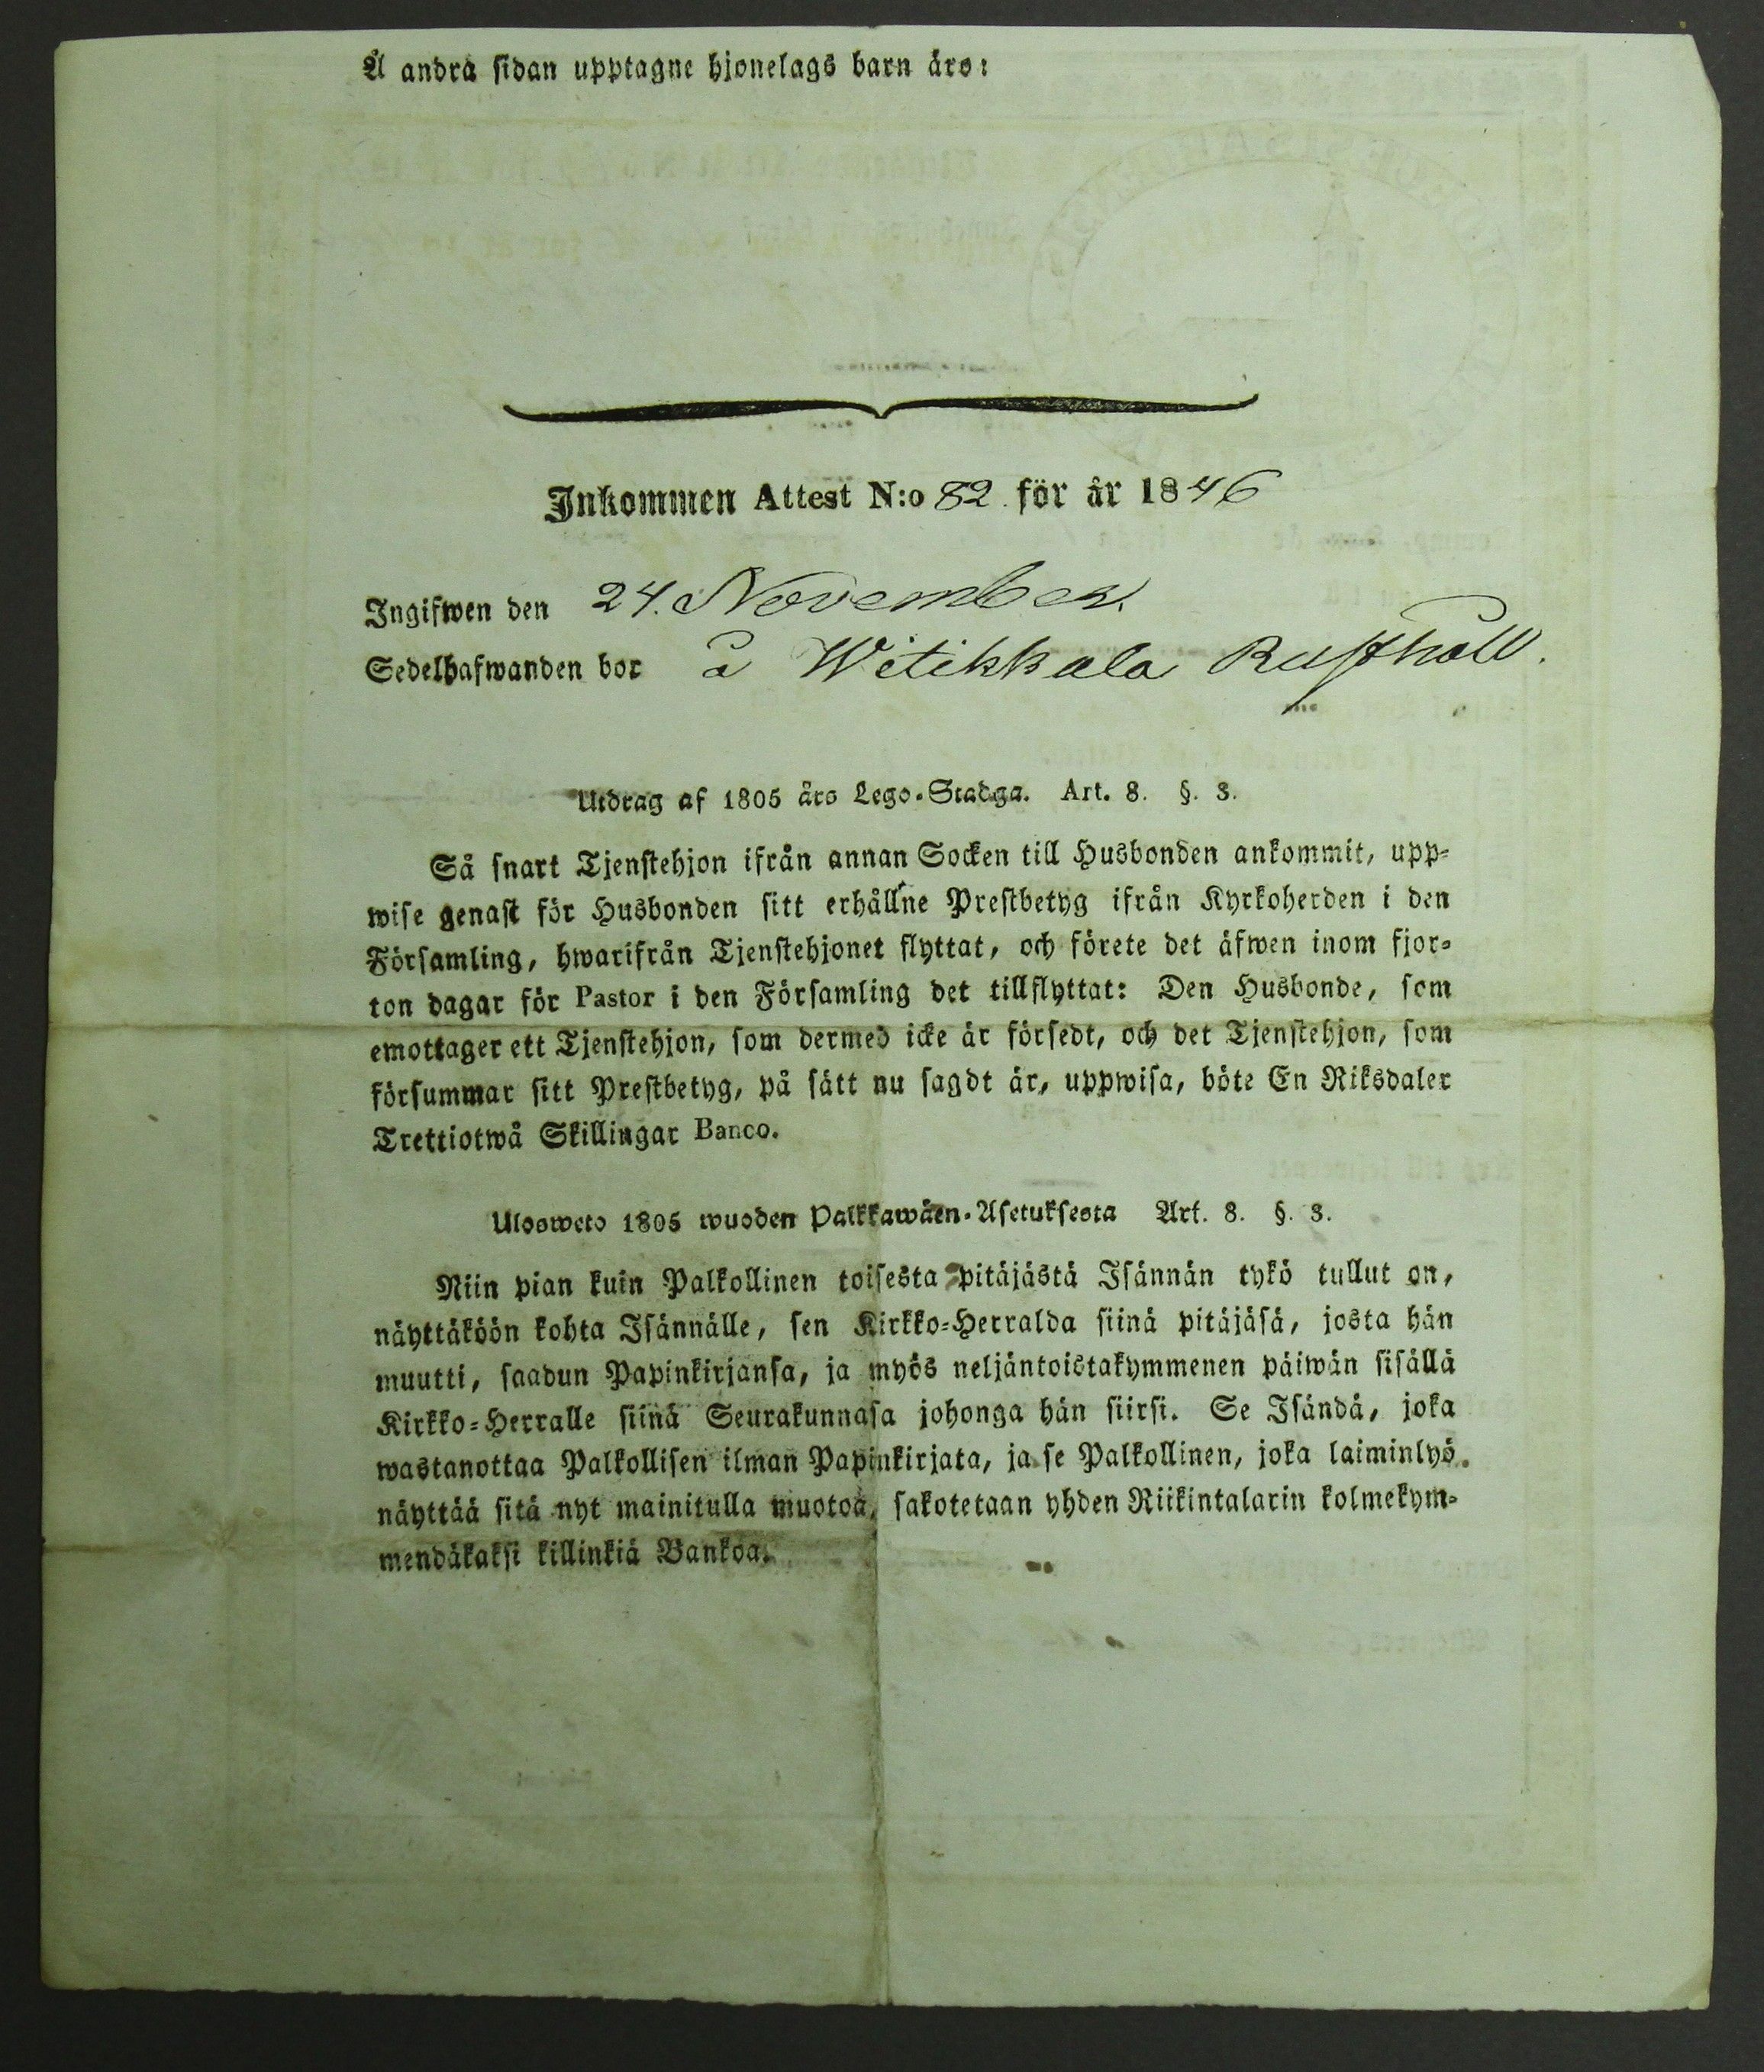 Å andra sidan upptagne hjonelags barn äro:
Inkommen Attest N:o 82. för år 1846
Ingifwen den 24. November.
Sedelhafwanden bor å Witikkala Rusthåll.
Utdrag af 1805 års Lego-Stadga. Art. 8. §. 3.
Så snart Tjenstehjon ifrån annan Socken till Husbonden ankommit, upp-
wise genast för Husbonden sitt erhållne Prestbetyg ifrån Kyrkoherden i den
Församling, hwarifrån Tjenstehjonet flyttat, och förete det äfwen inom fjor-
ton dagar för Pastor i den Församling det tillflyttat: Den Husbonde, som
emottager ett Tjenstehjon, som dermed icke är försedt, och det Tjenstehjon, som
försummar sitt Prestbetyg, på sätt nu sagdt är, uppwisa, böte En Riksdaler
Trettiotwå Skillingar Banco.
Ulosweto 1805 wuoden Palkkawäen-Asetuksesta Art. 8. §. 3.
Niin pian kuin Palkollinen toisesta pitäjästä Isännän tykö tullut on,
näyttäköön kohta Isännälle, sen Kirkko-Herralda siinä pitäjäsä, josta hän
muutti, saadun Papinkirjansa, ja myös neljäntoistakymmenen päiwän sisällä
Kirkko-Herralle siinä Seurakunnasa johonga hän siirsi. Se Isändä, joka
wastanottaa Palkollisen ilman Papinkirjata, ja se Palkollinen, joka laiminlyö
näyttää sitä nyt mainitulla muotoa, sakotetaan yhden Riikintalarin kolmekym-
mendäkaksi killinkiä Bankoa.